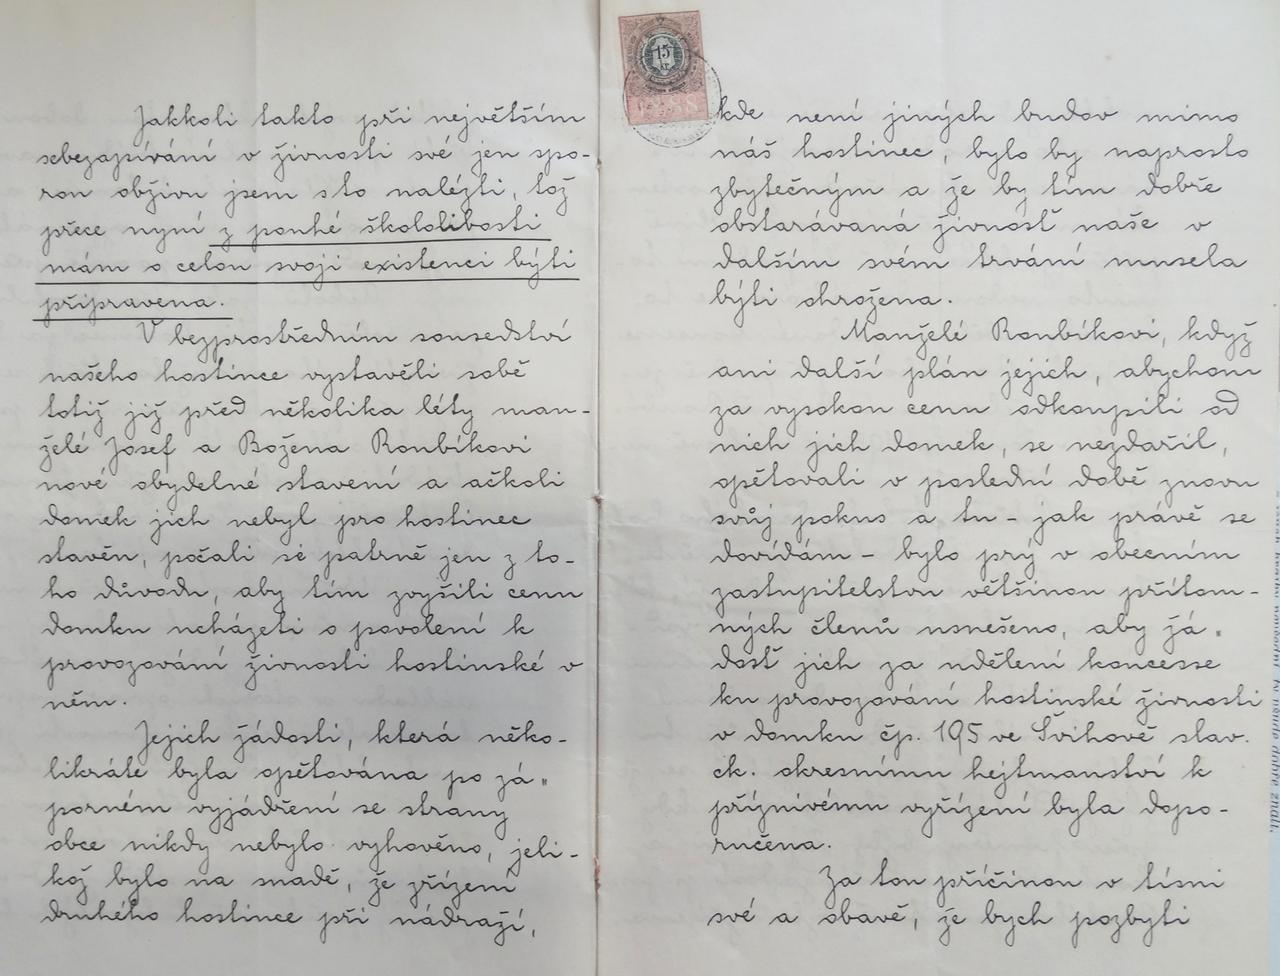 Jakkoli takto při největším
sebezapírání v živnosti své jen spo-
rou obživu jsem sto nalézti, tož
přece nyní z pouhé škololibosti
mám o celou svoji existenci býti
připravena.
V bezprostředním sousedství
našeho hostince vystavěli sobě
totiž již před několika léty man-
želé Josef a Božena Roubíkovi
nové obydelné stavení a ačkoli
domek jich nebyl pro hostinec
stavěn, počali se patrně jen z to-
ho důvodu, aby tím zvýšili cenu
domku ucházeti o povolení k
provozování živnosti hostinské v
něm.
Jejich žádosti, která něko-
likráte byla opětována po zá„
porném vyjádření se strany
obce nikdy nebylo vyhověno, jeli-
kož bylo na snadě, že zřízení
druhého hostince při nádraží,
15
kr.
1888
kde není jiných budov mimo
náš hostinec, bylo by naprosto
zbytečným a že by tím dobře
obstarávaná živnost naše v
dalším svém trvání musela
býti ohrožena.
Manželé Roubíkovi, když
ani další plán jejich, abychom
za vysokou cenu odkoupili od
nich jich domek, se nezdařil,
opětovali v poslední době znovu
svůj pokus a tu – jak právě se
dovídám – bylo prý v obecním
zastupitelstvu většinou přítom-
ných členů usnešeno, aby žá„
dosť jich za udělení koncesse
ku provozování hostinské živnosti
v domku čp. 195 ve Švihově slav.
ck. okresnímu hejtmanství k
příznivému vyřízení byla dopo-
ručena.
Za tou příčinou v tísni
své a obavě, že bych pozbyti